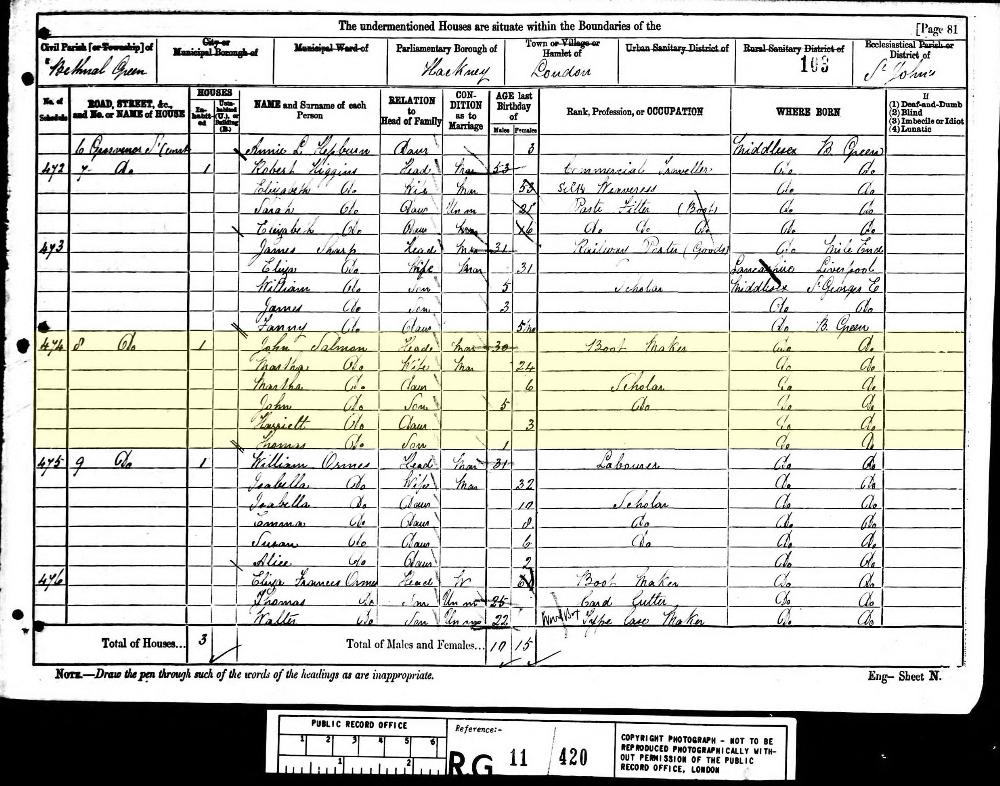 The undermentioned Houses are situate within the Boundaries of the
[Page 81
Civil Parish [or Township] of
Bethnal Green
City or Municipal Borough of
Municipal Ward of
Parliamentary Borough of
Hackney
Town or Village or Hamlet of
London
Urban Sanitary District of
Rural Sanitary District of
103
Ecclesiastical Parish or District of
St Johns
No. of Schedule
ROAD, STREET, &c., and No. or NAME of HOUSE
HOUSES
Inhabited
Uninhabited (U.), or Building (B.)
NAME and Surname of each Person
RELATION to Head of Family
CONDITION as to Marriage
AGE last Birthday of
Males
Females
Rank, Profession, or OCCUPATION
WHERE BORN
If
(1) Deaf-and-Dumb
(2) Blind
(3) Imbecile or Idiot
(4) Lunatic
6 Grosvenor St Annie L Hepburn Daur 3 Middlesex B. Green
472 7 Do 1 Robert Higgins Head Mar 53 Commercial Traveller Do Do
Elizabeth Do Mar Silk Weaveress Do Do
Sarah Do Daur Unm 21 Paste Fitter (Boot) Do Do
Elizabeth Do Daur 16 Do Do Do Do Do
473 James Sharp Head Mar 31 Railway Porter (Goods) Do Mile End
Eliza Do Wife Mar 31 Lancashire Liverpool
William Do Son 5 Scholar Middlesex St Georges E
James Do Son 3 Do Do
Fanny Do Daur 5/mo Do B. Green
474 8 Do 1 John Salmon Head Mar 30 Boot Maker Do Do
Martha Do Wife Mar 24 Do Do
Martha Do Daur 6 Scholar Do Do
John Do Son 5 Do Do Do
Harriett Do Daur 3 Do Do
Thomas Do Son 1 Do Do
475 9 Do 1 William Ormes Head Mar 31 Labourer Do Do
Isabella Do Wife Mar 32 Do Do
Isabella Do Daur 10 Scholar Do Do
Emma Do Daur 8 Do Do Do
Susan Do Daur 6 Do Do Do
Alice Do Daur 2 Do Do
476 Eliza Frances Ormes Head W Boot Maker Do Do
Thomas Do Son Unm 25 Card Cutter Do Do
Walter Do Son Unm 22 Type Case Maker Do Do
Total of Houses... 3
Total of Males and Females... 10 15
NOTE.—Draw the pen through such of the words of the headings as are inappropriate.
Eng— Sheet N.
PUBLIC RECORD OFFICE
1 2 3 4 5 6
1 2
Reference:-
RG 11 / 420
COPYRIGHT PHOTOGRAPH - NOT TO BE
REPRODUCED PHOTOGRAPHICALLY WITH-
OUT PERMISSION OF THE PUBLIC
RECORD OFFICE, LONDON